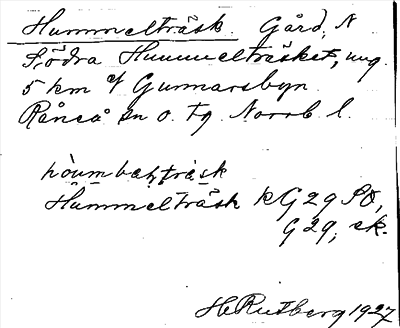 Hummelträsk. Gård, N
Södra Hummelträsket, ung.
5 km Gunnarsbyn.
Råneå sn o. tg Norrb. l.
träsk
Hummelträsk KG 29 SO,
G 29, ek.
H Rutberg 1927